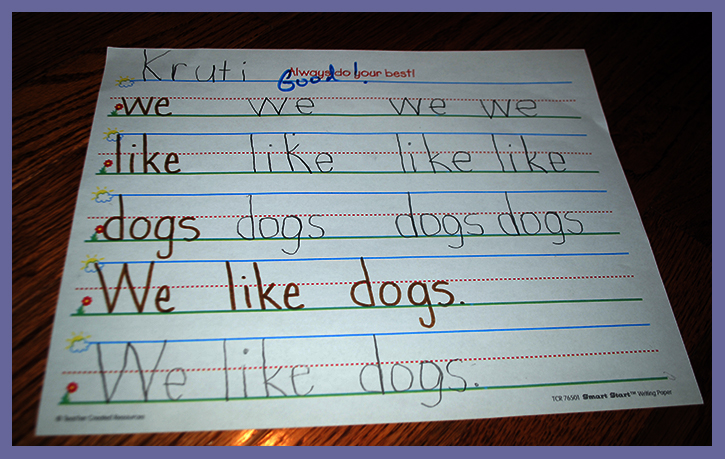 Kruti
Always do your best!
Good!
we we we we
like like like like
dogs dogs dogs dogs
We like dogs.
We like dogs.
© Teacher Created Resources
TCR 76501 Smart Start™ Writing Paper